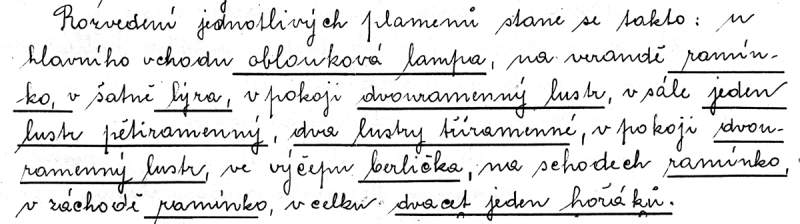 Rozvedení jednotlivých plamenů stane se takto: u
hlavního vchodu oblouková lampa, na verandě ramín-
ko, v šatně lýra, v pokoji dvouramenný lustr, v sále jeden
lustr pětiramenný, dva lustry tříramenné, v pokoji dvou-
ramenný lustr, ve výčepu berlička, na schodech ramínko,
v záchodě ramínko, v celku dvacet jeden hořáků.